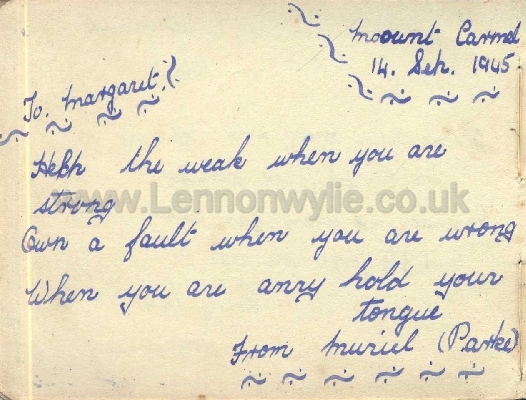 Moount Carmel
14. Seh. 1945
To. Margaret.
Help the weak when you are
strong
www.Lennonwylie.co.uk
Own a fault when you are wrong
When you are anry hold your
tongue
From Muriel (Parke)